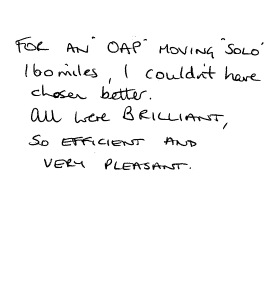 FOR AN "OAP" MOVING "SOLO"
160 miles, I couldn't have
chosen better.
All were BRILLIANT,
SO EFFICIENT AND
VERY PLEASANT.